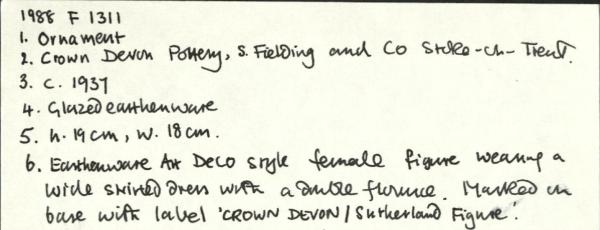 1988 F 1311
1. Ornament
2. Crown Devon Pottery, S. Fielding and Co Stoke-on-Trent.
3. C. 1937
4. Glazed earthenware
5. h. 19cm, w. 18cm.
6. Earthenware Art Deco style female figure wearing a
wide skirted dress with a double flounce. Marked on
base with label 'CROWN DEVON / Sutherland Figure'.